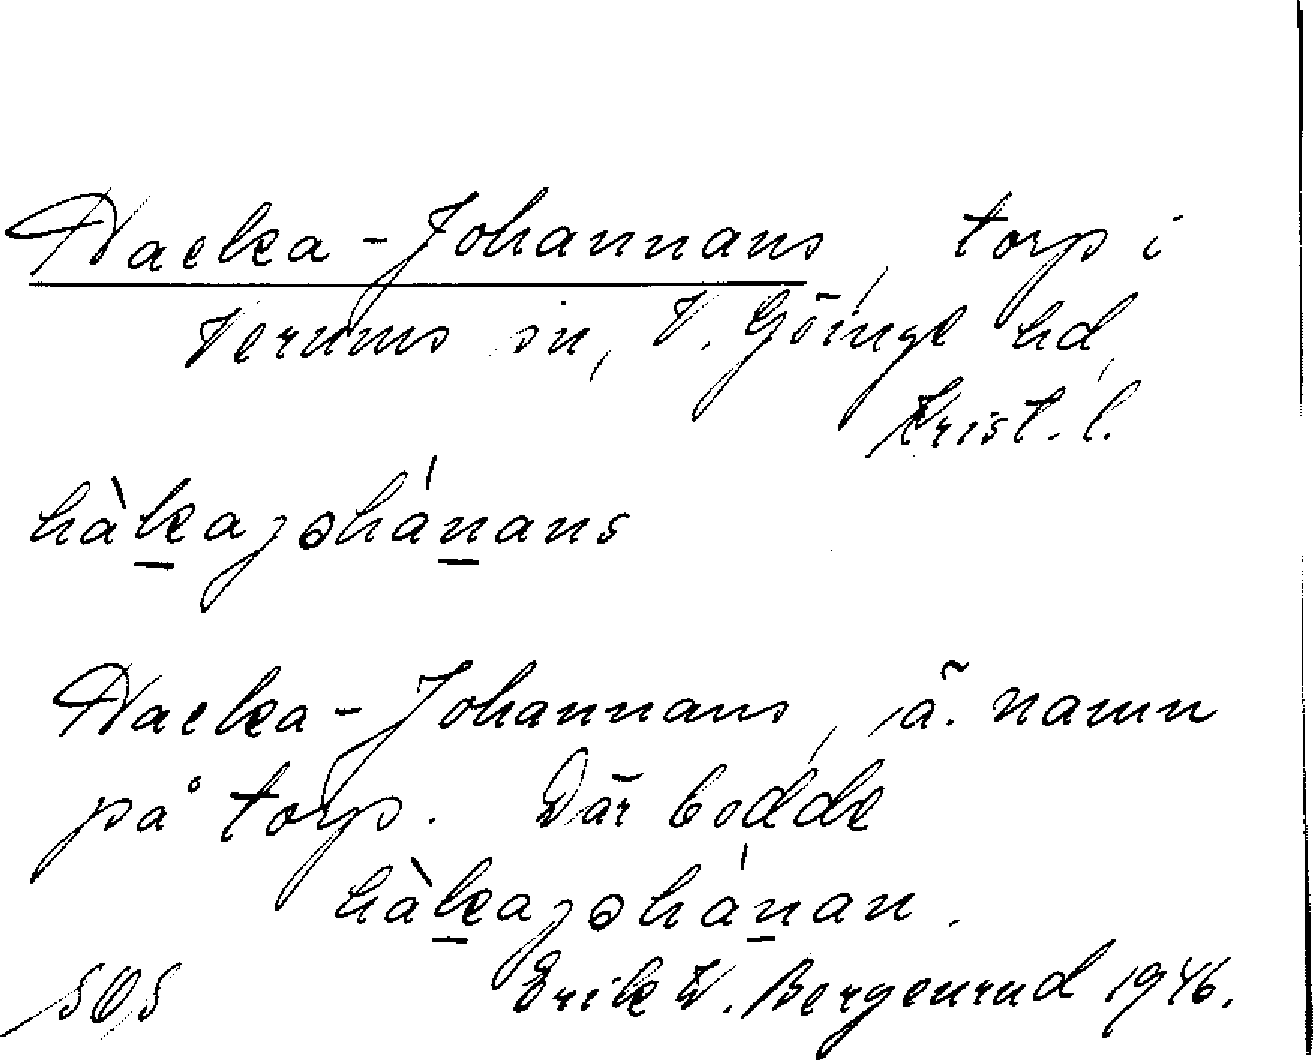 Hacka-Johannans, torp i
Verums sn, V. Göinge hd,
Krist. l.
hàkajohánans
Hacka-Johannans, ä. namn
på torp. Där bodde
hàkajohánan.
Erik W. Bergenrud 1946.